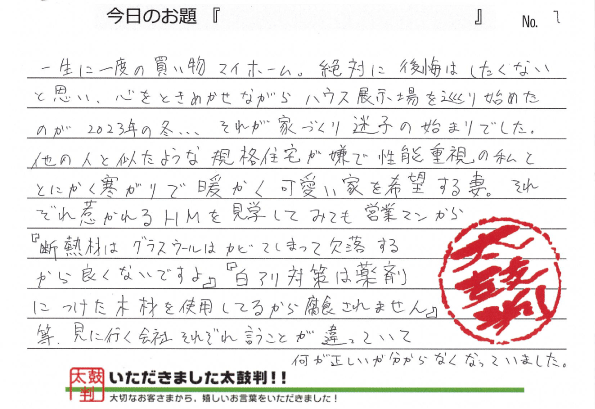 今日のお題『　　　　　　　　　　』 No. 1
一生に一度の買い物 マイホーム。絶対に 後悔は したくない
と思い、心をときめかせながら ハウス展示場を巡り始めた
のが 2023年の冬... それが 家づくり 迷子の 始まりでした。
他の人と似たような 規格住宅が嫌で 性能重視の私と
とにかく寒がりで 暖かく 可愛い家を希望する妻。それ
ぞれ惹かれるHMを見学してみても 営業マンから
『断熱材は グラスウールは カビてしまって欠落する
から良くないですよ』『白アリ対策は薬剤
につけた木材を使用してるから腐食されません』
等、見に行く会社 それぞれ 言うことが 違っていて
何が正しいか分からなくなっていました。
太鼓判
太鼓判 いただきました太鼓判!!
大切なお客さまから、嬉しいお言葉をいただきました！